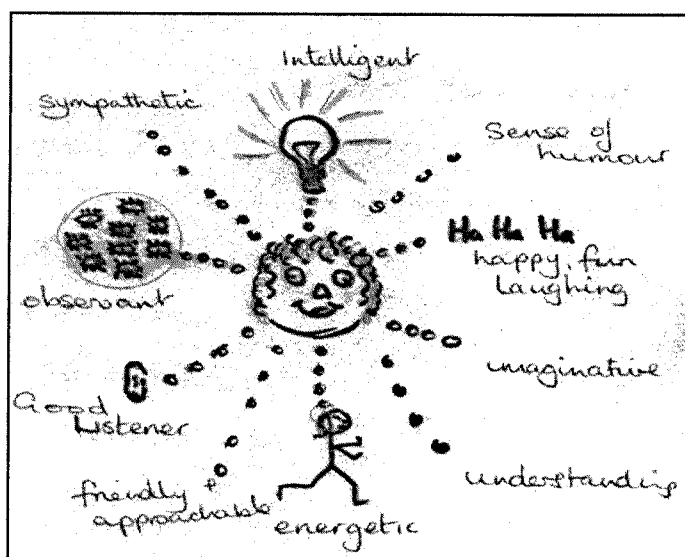 Intelligent
sympathetic
Sense of
humour
Ha Ha Ha
happy, fun
laughing
observant
imaginative
Good
Listener
understanding
friendly &
approachable
energetic